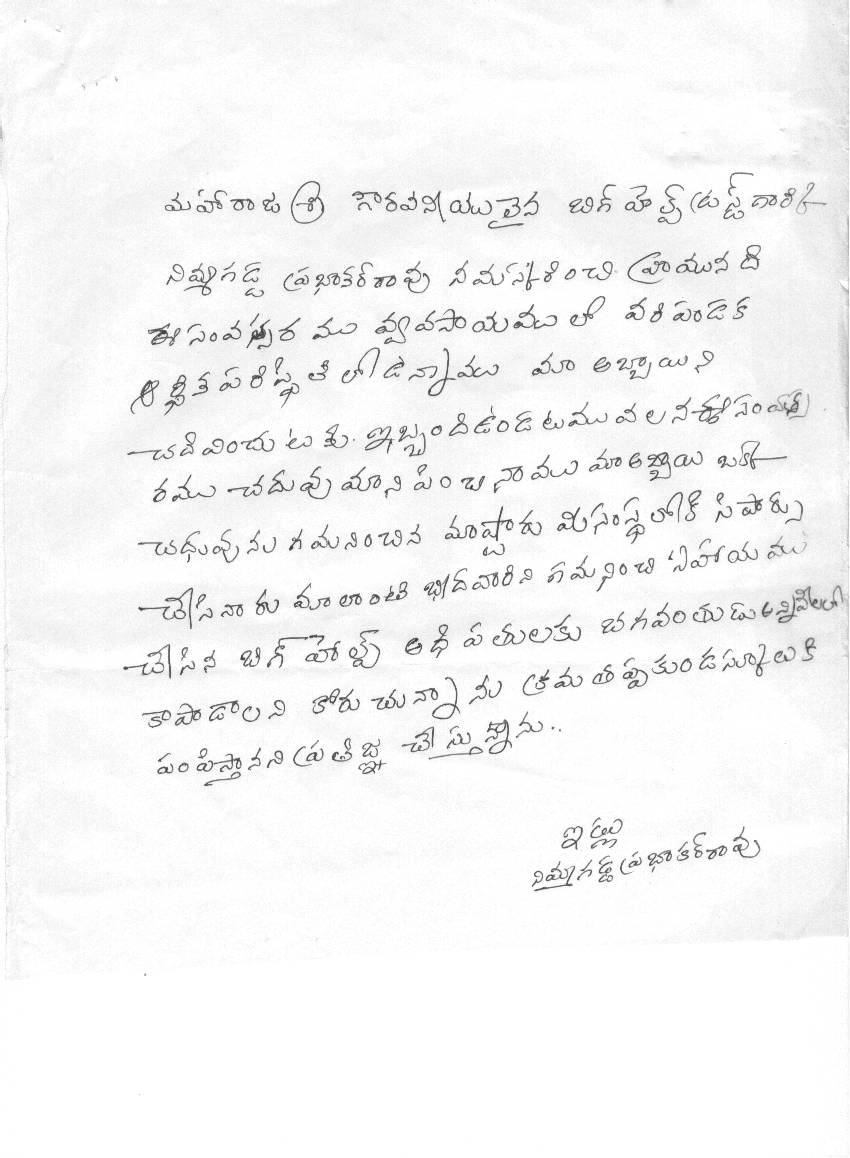 మహారాజ శ్రీ గౌరవనీయులైన బిగ్ హెల్ప్ ట్రస్ట్ గారికి
నిమ్మగడ్డ ప్రభాకర్‌రావు నమస్కరించి వ్రాయునది
ఈ సంవత్సరము వ్యవసాయములో వరి పండక
ఆర్థిక పరిస్థితిలో ఉన్నాము మా అబ్బాయిని
చదివించుటకు ఇబ్బంది ఉండటము వలన ఈ సంవత్స
రము చదువు మానిపించినాము మా అబ్బాయి
చదువును గమనించిన మాష్టారు మీ సంస్థలోకి సిపార్సు
చేసినారు మాలాంటి భీదవారిని గమనించి సహాయము
చేసిన బిగ్ హెల్ప్ అధిపతులకు బగవంతుడు అన్నివేలలా
కాపాడాలని కోరుచున్నాను క్రమం తప్పకుండ స్కూలుకి
పంపిస్తానని ప్రతిజ్ఞ చేస్తున్నాను..
ఇట్లు
నిమ్మగడ్డ ప్రభాకర్‌రావు